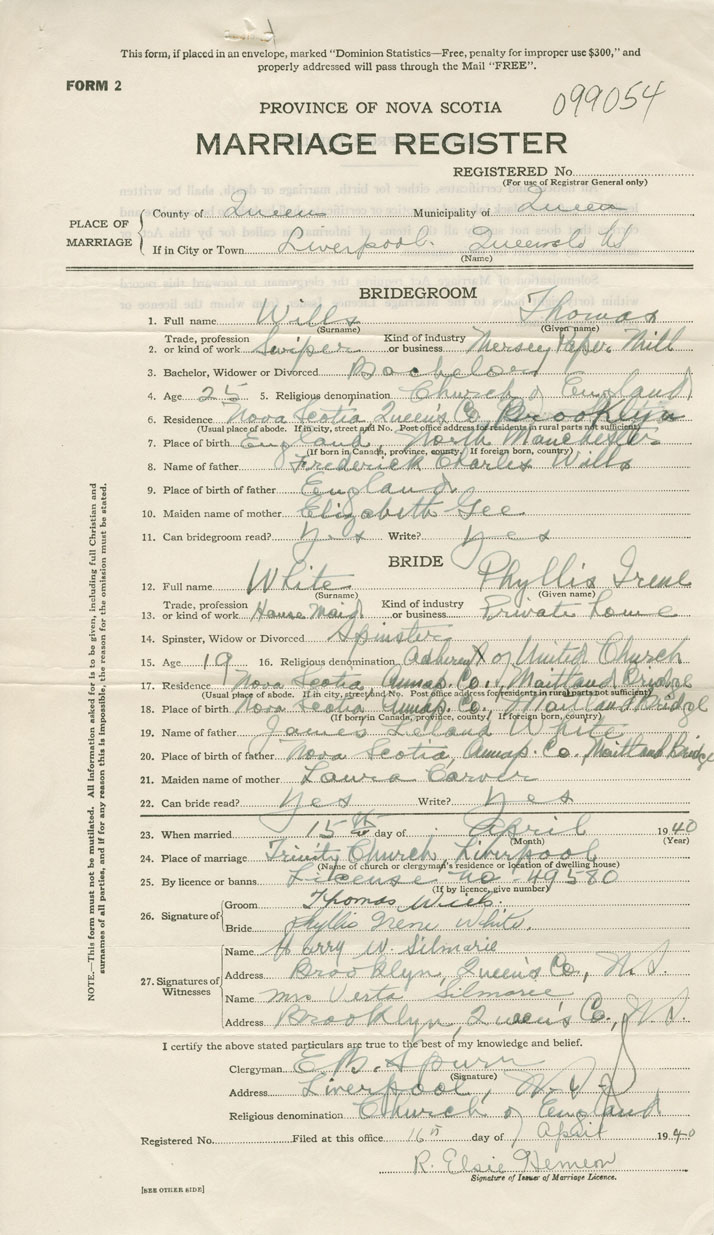 This form, if placed in an envelope, marked "Dominion Statistics—Free, penalty for improper use $300," and
properly addressed will pass through the Mail "FREE".
FORM 2
099054
PROVINCE OF NOVA SCOTIA
MARRIAGE REGISTER
REGISTERED No.
(For use of Registrar General only)
PLACE OF MARRIAGE
County of Queen Municipality of Queen
If in City or Town Liverpool. Queens Co NS
(Name)
BRIDEGROOM
1. Full name Wills Thomas
(Surname) (Given name)
2. Trade, profession or kind of work Swiper Kind of industry or business Mersey Paper Mill
3. Bachelor, Widower or Divorced Bachelor
4. Age 25 5. Religious denomination Church of England
6. Residence Nova Scotia, Queen's Co. Brooklyn
(Usual place of abode. If in city, street and No. Post office address for residents in rural parts not sufficient)
7. Place of birth England, North Manchester
(If born in Canada, province, county. If foreign born, country)
8. Name of father Frederick Charles Wills
9. Place of birth of father England
10. Maiden name of mother Elizabeth Gee
11. Can bridegroom read? yes Write? yes
BRIDE
12. Full name White Phyllis Irene
(Surname) (Given name)
13. Trade, profession or kind of work House Maid Kind of industry or business Private home
14. Spinster, Widow or Divorced Spinster
15. Age 19 16. Religious denomination Adherent of United Church
17. Residence Nova Scotia, Annap. Co., Maitland Bridge
(Usual place of abode. If in city, street and No. Post office address for residents in rural parts not sufficient)
18. Place of birth Nova Scotia Annap. Co., Maitland Bridge
(If born in Canada, province, county. If foreign born, country)
19. Name of father James Leland White
20. Place of birth of father Nova Scotia, Annap. Co. Maitland Bridge
21. Maiden name of mother Laura Carver
22. Can bride read? yes Write? yes
23. When married 15th day of April 1940
(Month) (Year)
24. Place of marriage Trinity Church, Liverpool
(Name of church or clergyman's residence or location of dwelling house)
25. By licence or banns. License no. 49580
(If by licence, give number)
26. Signature of Groom Thomas Wills.
Bride Phyllis Irene White.
27. Signatures of Witnesses
Name Harry W. Silmarie
Address Brooklyn, Queen's Co., N.S.
Name Mrs Verta Silmarie
Address Brooklyn, Queen's Co., N.S.
I certify the above stated particulars are true to the best of my knowledge and belief.
Clergyman E.B. Spurr
(Signature)
Address Liverpool, N.S.
Religious denomination Church of England
Registered No. Filed at this office 16th day of April 1940
R. Elsie Hemeon
Signature of Issuer of Marriage Licence.
[SEE OTHER SIDE]
NOTE.—This form must not be mutilated. All information asked for is to be given, including full Christian and
surnames of all parties, and if for any reason this is impossible, the reason for the omission must be stated.